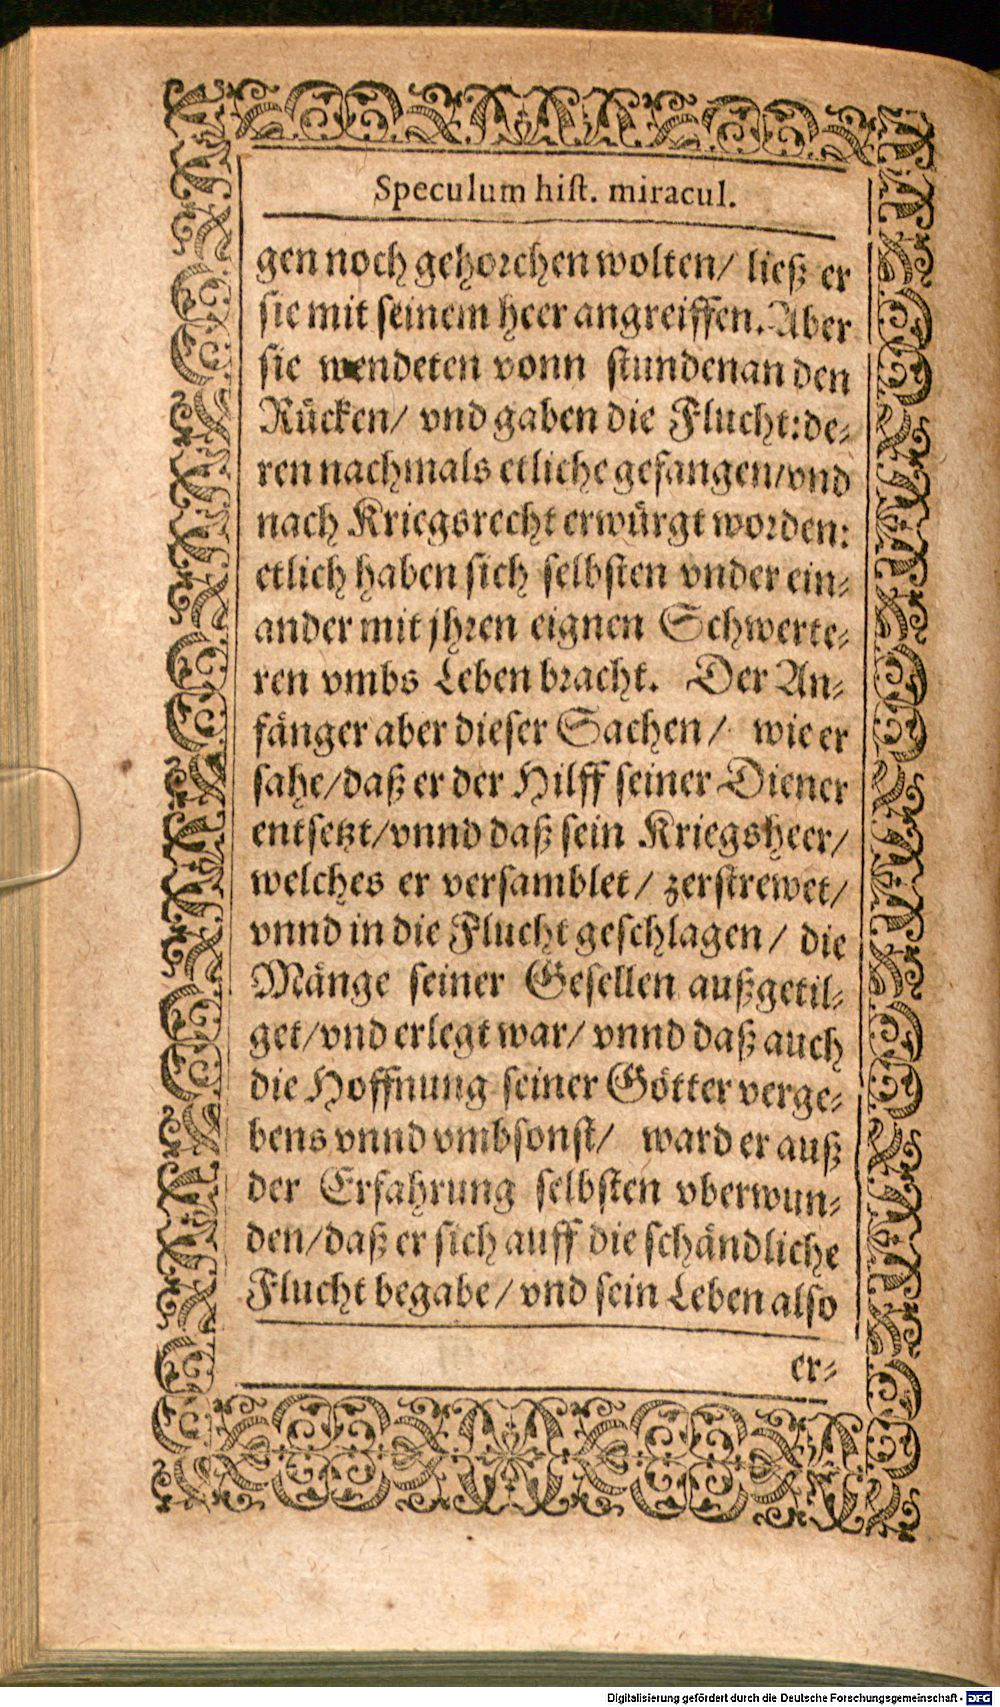 Speculum hist. miracul.
gen noch gehorchen wolten/ ließ er
sie mit seinem heer angreiffen. Aber
sie wendeten vonn stundenan den
Rücken/ vnd gaben die Flucht: de-
ren nachmals etliche gefangen/ vnd
nach Kriegsrecht erwürgt worden:
etlich haben sich selbsten vnder ein-
ander mit jhren eignen Schwerte-
ren vmbs Leben bracht. Der An-
fänger aber dieser Sachen/ wie er
sahe/ daß er der Hilff seiner Diener
entsetzt/ vnnd daß sein Kriegsheer/
welches er versamblet/ zerstrewet/
vnnd in die Flucht geschlagen/ die
Mänge seiner Gesellen außgetil-
get/ vnd erlegt war/ vnnd daß auch
die Hoffnung seiner Götter verge-
bens vnnd vmbsonst/ ward er auß
der Erfahrung selbsten vberwun-
den/ daß er sich auff die schändliche
Flucht begabe/ vnd sein Leben also
er-
Digitalisierung gefördert durch die Deutsche Forschungsgemeinschaft - DFG